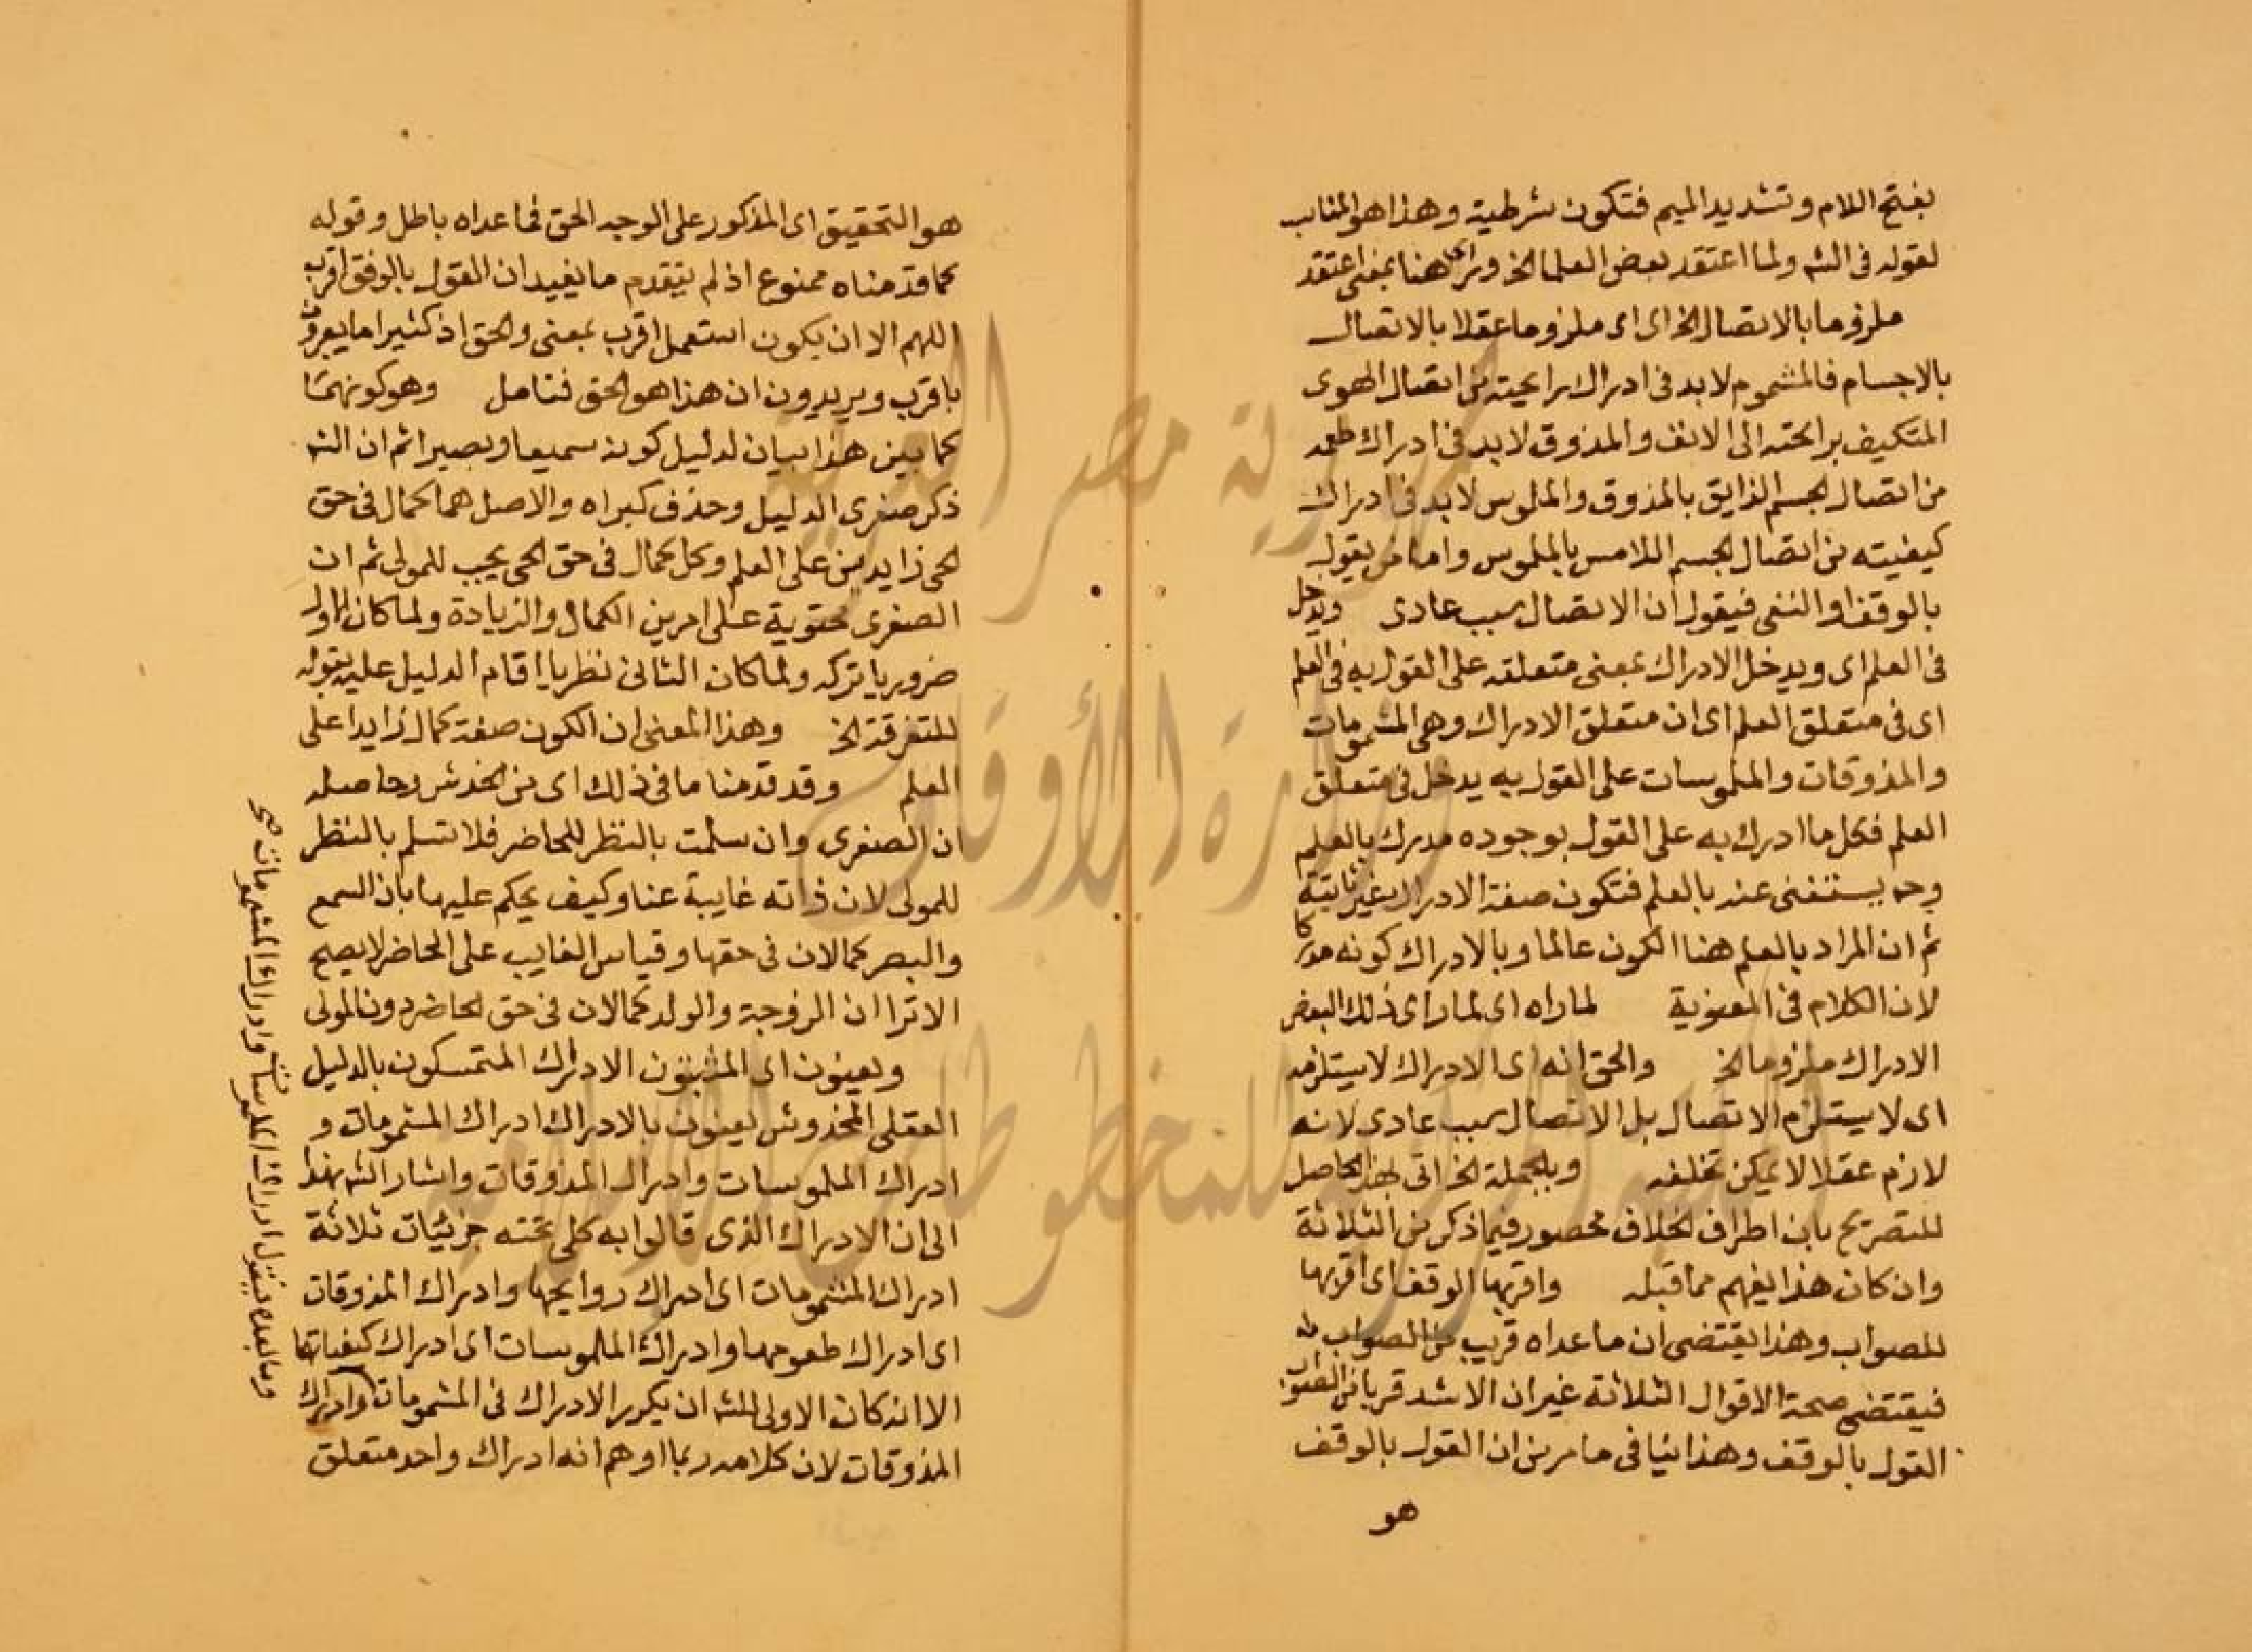 بفتح اللام وتشديد الميم فتكون شرطية وهذا هو المناسب
لقوله فى الشه ولما اعتقد بعض العلما الخ وراى هنا بمعنى اعتقد
ملزوما بالاتصال الخ اى اى ملزوما عقلا بالاتصال
بالاجسام فالمشموم لا بد فى ادراك رايحته من اتصال الهوى
المتكيف برايحته الى الانف والمذوق لا بد فى ادراك طعمه
من اتصال الجسم الذايق بالمذوق والملموس لا بد فى ادراك
كيفيته من اتصال الجسم اللامس بالملموس واما من يقول
بالوقف او النفى فيقول ان الاتصال سبب عادى ويدخل
فى العلم اى ويدخل الادراك بمعنى متعلقه على القول به فى العلم
اى فى متعلق العلم اى ان متعلق الادراك وهى المشمومات
والمذوقات والملموسات على القول به يدخل فى متعلق
العلم فكل ما ادرك به على القول بوجوده مدرك بالعلم
وح يستغنى عنه بالعلم فتكون صفة الادراك غير ثابتة
ثم ان المراد بالعلم هنا الكون عالما وبالادراك كونه مدركا
لان الكلام فى المعنوية لما راه اى لما راى ذلك البعض
الادراك ملزوما الخ والحق انه اى الادراك لا يستلزمه
اى لا يستلزم الاتصال بل الاتصال سبب عادى لا انه
لازم عقلا لا يمكن تخلفه وبالجملة الخ اتى بهذا الحاصل
للتصريح بان اطراف الخلاف محصور فيما ذكر من الثلاثة
وان كان هذا يفهم مما قبله واقربها الوقف اى اقربها
للصواب وهذا يقتضى ان ما عداه قريب من الصواب
فيقتضى صحة الاقوال الثلاثة غير ان الاشد قربا من الصواب
القول بالوقف وهذا ينافى ما مر من ان القول بالوقف
هو
هو التحقيق اى المذكور على الوجه الحق فما عداه باطل وقوله
كما قدمناه ممنوع اذ لم يتقدم ما يفيد ان القول بالوقف اقرب
اللهم الا ان يكون استعمل اقرب بمعنى والحق اذ كثيرا ما يعبرون
باقرب ويريدون ان هذا هو الحق فتامل وهو كونهما
كما بين هذا بيان لدليل كونه سميعا وبصيرا ثم ان الشه
ذكر صغرى الدليل وحذف كبراه والاصل هما كمال فى حق
الحى زايدين على العلم وكل كمال فى حق الحى يجب للمولى ثم ان
الصغرى محتوية على امرين الكمال والزيادة ولما كان الاول
ضروريا تركه ولما كان الثانى نظريا اقام الدليل عليه بقوله
للتفرقة الخ وهذا المعنى ان الكون صفة كمال زايدا على
العلم وقد قدمنا ما فى ذلك اى من الخدش وحاصله
ان الصغرى وان سلمت بالنظر للحاضر فلا تسلم بالنظر
للمولى لان ذاته غايبة عنا وكيف يحكم عليها بان السمع
والبصر كمالان فى حقها وقياس الغايب على الحاضر لا يصح
الا ترا ان الزوجة والولد كمالان فى حق الحاضر دون المولى
ويعنون اى المثبتون الادراك المتمسكون بالدليل
العقلى المخدوش يعنون بالادراك ادراك المشمومات و
ادراك الملموسات وادراك المذوقات واشار الشه بهذا
الى ان الادراك الذى قالوا به كلى تحته جزئيات ثلاثة
ادراك المشمومات اى ادراك روايحها وادراك المذوقات
اى ادراك طعومها وادراك الملموسات اى ادراك كيفياتها
الا انه كان الاولى للشه ان يكرر الادراك فى المشمومات وادراك
المذوقات لان كلامه ربما اوهم انه ادراك واحد متعلق
وما بعده فيقول ادراك الملموسات وادراك المشمومات صح
جمهورية مصر العربية
وزارة الأوقاف
المكتبة المركزية للمخطوطات الإسلامية